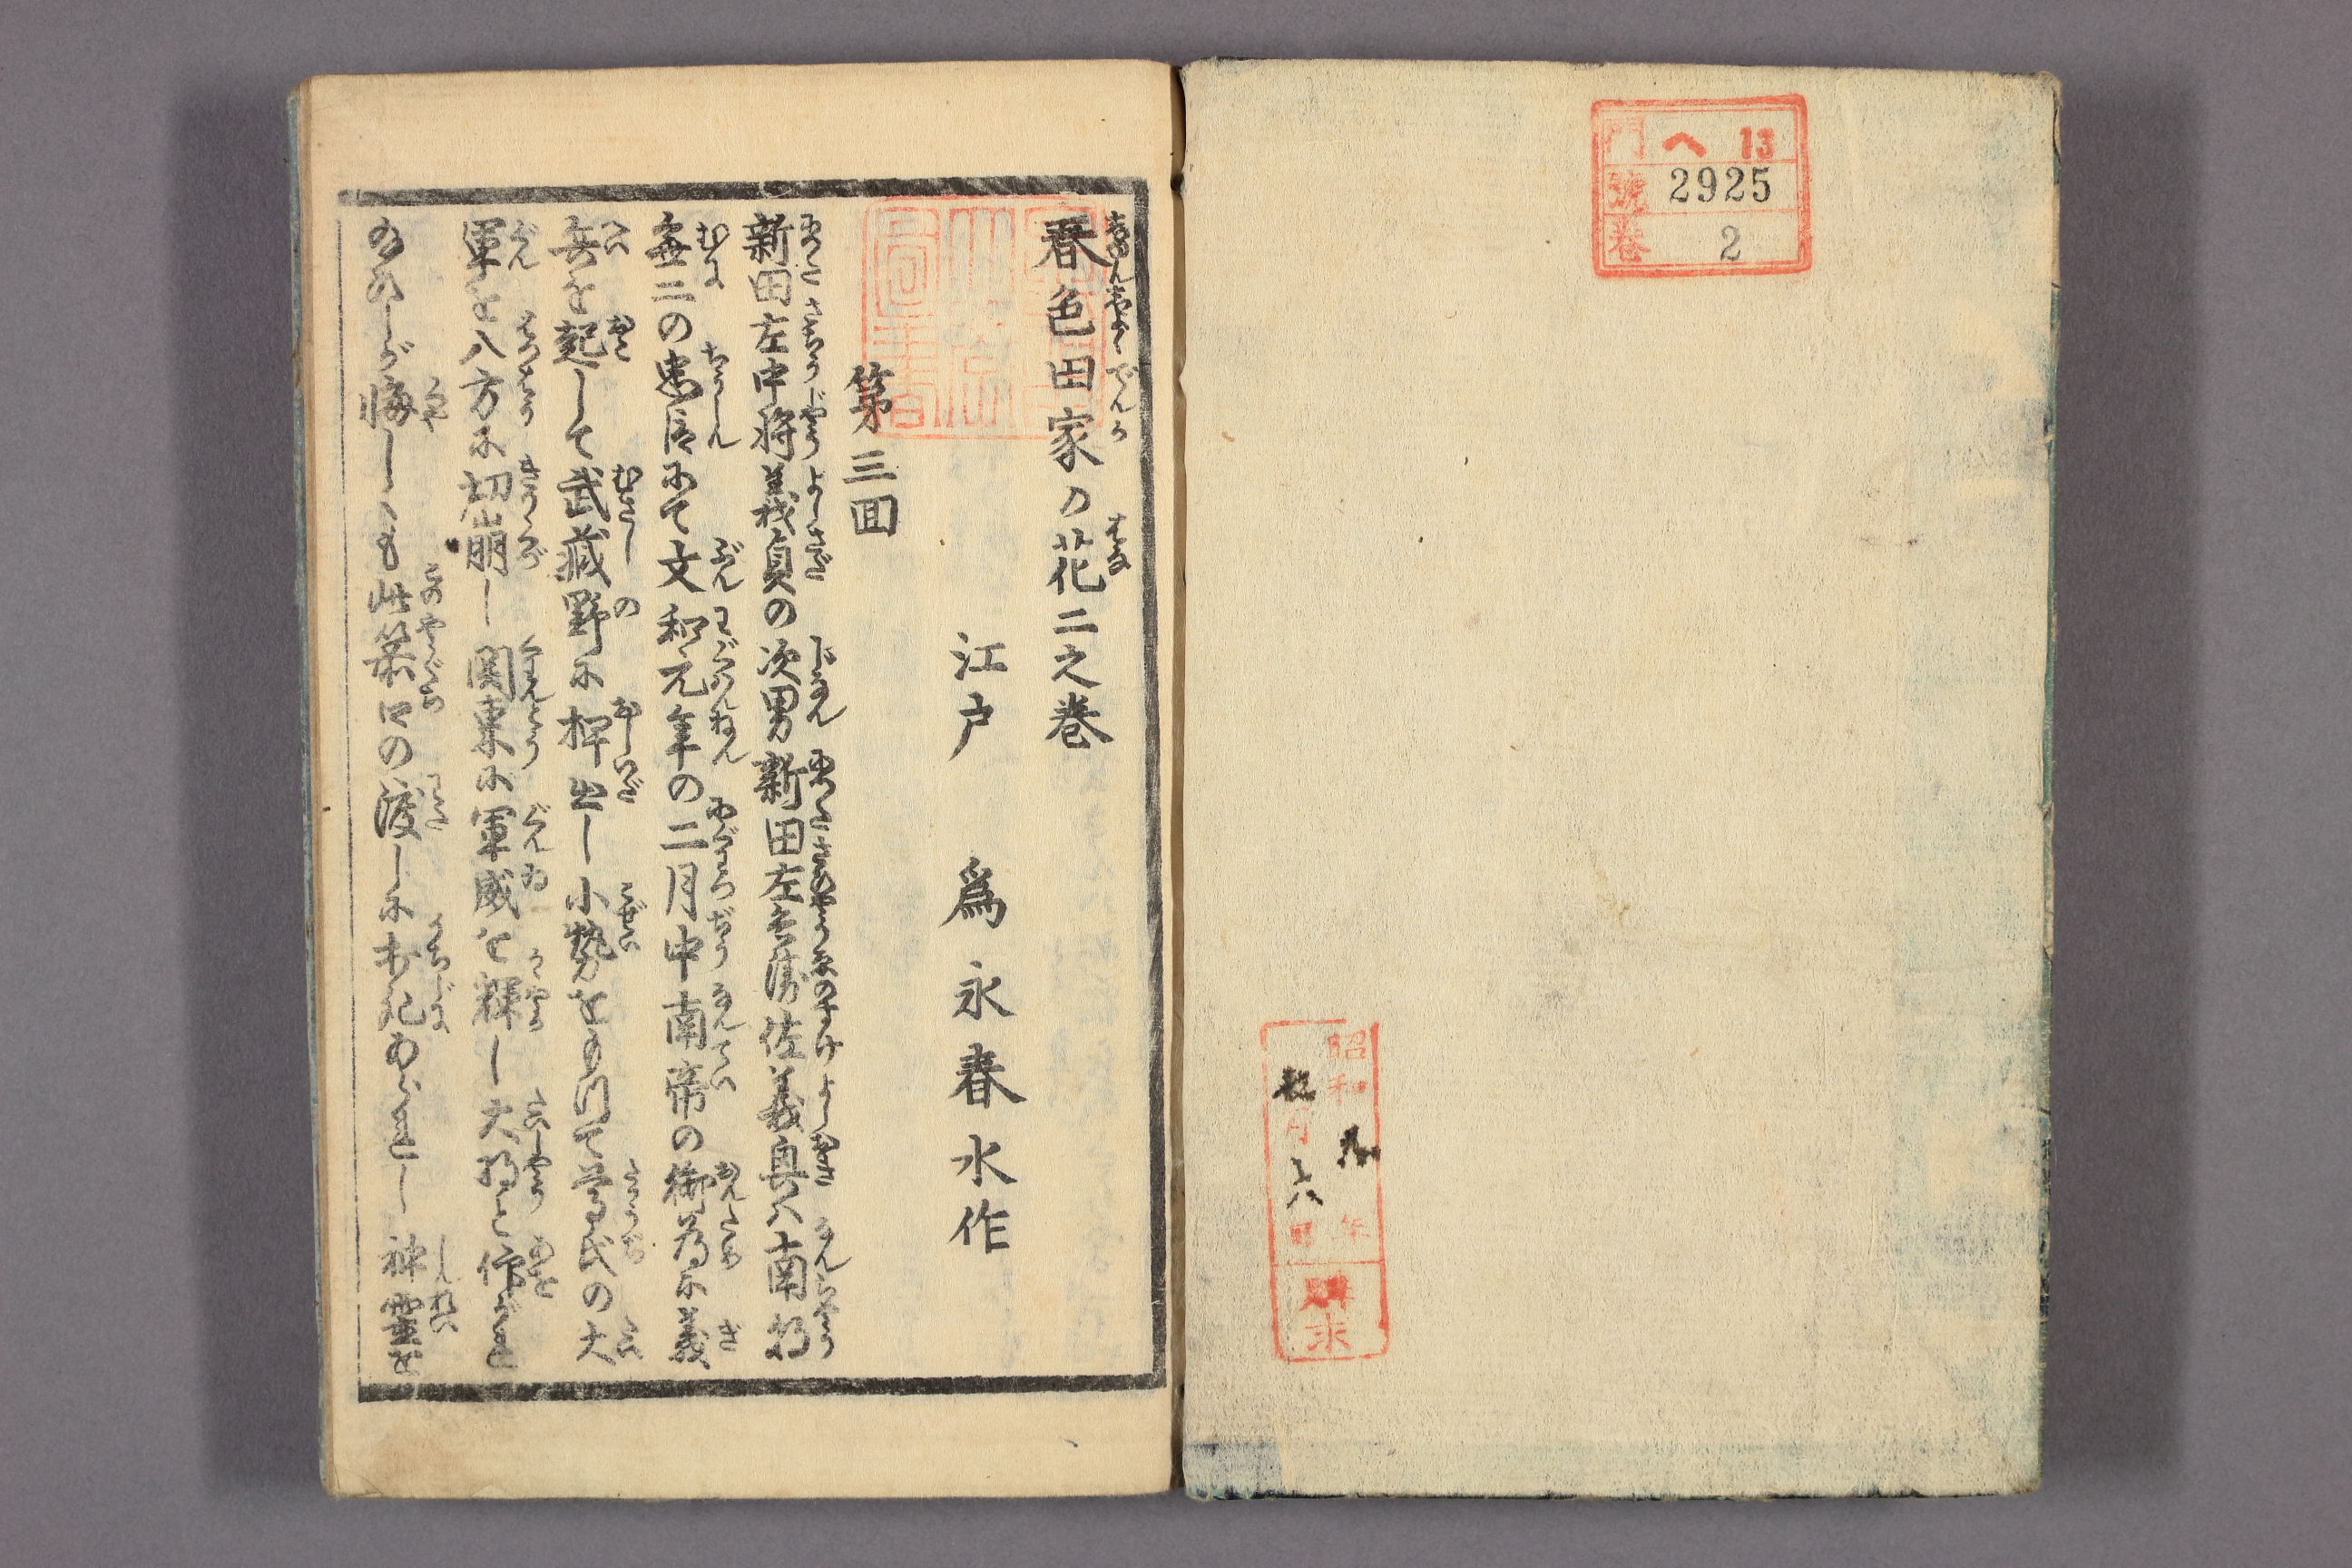 門 ヘ 13
號 2925
巻 2
昭和 九 年
月 十八 日
購求
春色田家の花二之巻
江戸 爲永春水作
第三回
新田左中将義貞の次男新田左兵衛佐義興ハ南朝
無二の忠臣にて文和元年の二月中南帝の御為に義
兵を起して武蔵野に押出し小勢を以て尊氏の大
軍を八方に切崩し関東に軍威を輝し大将と仰がれ
しが悔しくも此矢口の渡しに討死あられし神霊を